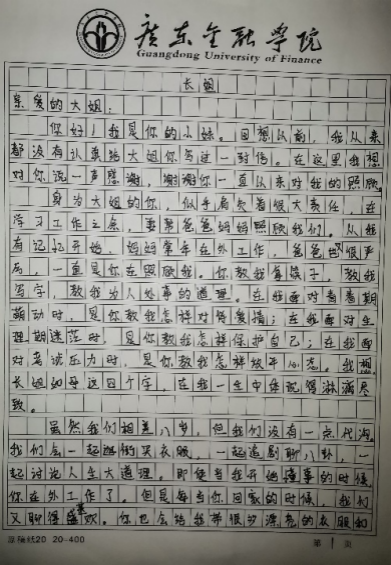 广东金融学院
Guangdong University of Finance
长姐
亲爱的大姐：
你好！我是你的小妹。回想从前，我从来
都没有认真给大姐你写过一封信。在这里我想
对你说一声感谢，谢谢你一直从来对我的照顾
身为大姐的你，似乎肩负着很大责任，在
学习工作之余，要帮爸爸妈妈照顾我们。从我
有记忆开始，妈妈常年在外工作，爸爸也很严
厉，一直是你在照顾我。你教我拿筷子，教我
写字，教我为人处事的道理。在我面对青春期
萌动时，是你教我怎样对待爱情；在我面对生
理期迷茫时，是你教我怎样保护自己；在我面
对考试压力时，是你教我怎样放平心态。我想
长姐如母这四个字，在我一生中体现得淋漓尽
致。
虽然我们相差八岁，但我们没有一点代沟。
我们会一起逛街买衣服，一起追剧聊八卦，一
起讨论人生大道理。即使当我开始懂事的时候，
你在外工作了。但是每当你回家的时候，我们
又聊得盛欢。你也会给我带很多漂亮的衣服和
20 20-400
第 1 页